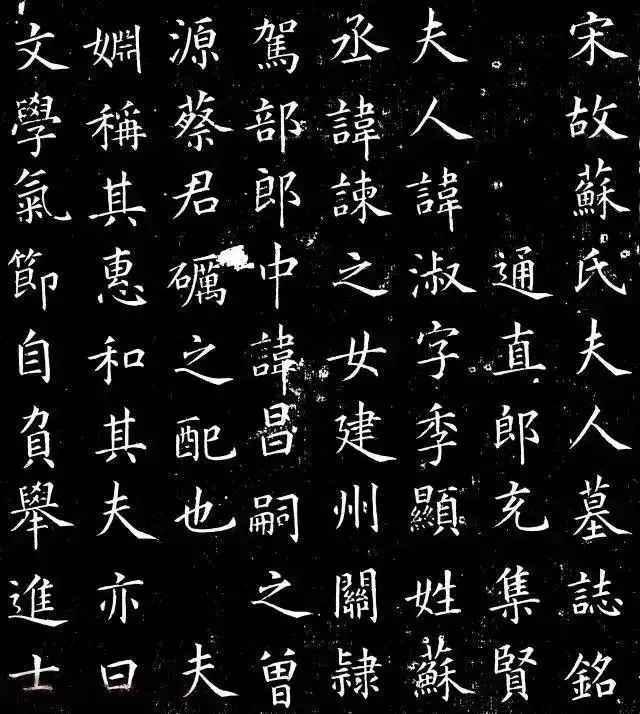 宋故蘇氏夫人墓誌銘
通直郎充集賢
夫人諱淑字季顯姓蘇
丞諱諫之女建州關隷
駕部郎中諱昌嗣之曾
源蔡君礪之配也　夫
婣稱其惠和其夫亦曰
文學氣節自負舉進士